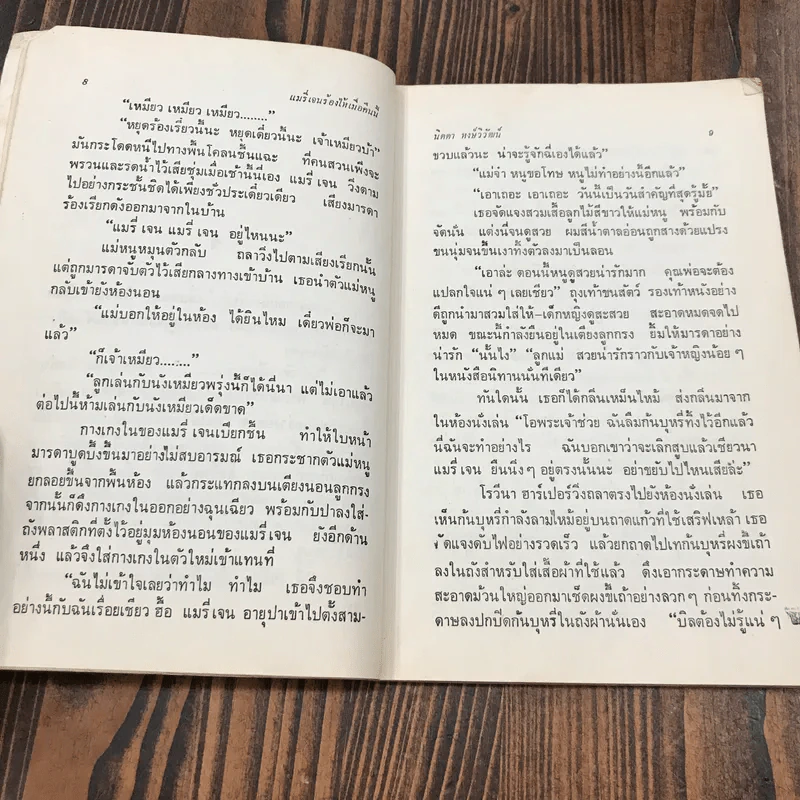 8
แมรี่เจนร้องไห้เมื่อคืนนี้
“เหมียว เหมียว เหมียว........”
“หยุดร้องเรี่ยวนี้นะ หยุดเดี๋ยวนี้นะ เจ้าเหมียวบ้า”
มันกระโดดหนีไปทางพื้นโคลนชื้นแฉะ ที่คนสวนเพิ่งจะ
พรวนและรดน้ำไว้เสียชุ่มเมื่อเช้านี้เอง แมรี่ เจน วิ่งตาม
ไปอย่างกระชั้นชิดได้เพียงชั่วประเดี๋ยวเดียว เสียงมารดา
ร้องเรียกดังออกมาจากในบ้าน
“แมรี่ เจน แมรี่ เจน อยู่ไหนนะ”
แม่หนูหมุนตัวกลับ ถลาวิ่งไปตามเสียงเรียกนั้น
แต่ถูกมารดาจับตัวไว้เสียกลางทางเข้าบ้าน เธอนำตัวแม่หนู
กลับเข้ายังห้องนอน
“แม่บอกให้อยู่ในห้อง ได้ยินไหม เดี๋ยวพ่อก็จะมา
แล้ว”
“ก็เจ้าเหมียว........”
“ลูกเล่นกับนังเหมียวพรุ่งนี้ก็ได้นี่นา แต่ไม่เอาแล้ว
ต่อไปนี้ห้ามเล่นกับนังเหมียวเด็ดขาด”
กางเกงในของแมรี่ เจนเปียกชื้น ทำให้ใบหน้า
มารดาบูดบึ้งขึ้นมาอย่างไม่สบอารมณ์ เธอกระชากตัวแม่หนู
ยกลอยขึ้นจากพื้นห้อง แล้วกระแทกลงบนเตียงนอนลูกกรง
จากนั้นก็ดึงกางเกงในออกอย่างฉุนเฉียว พร้อมกับปาลงใส่-
ถังพลาสติกที่ตั้งไว้อยู่มุมห้องนอนของแมรี่ เจน ยังอีกด้าน
หนึ่ง แล้วจึงใส่กางเกงในตัวใหม่เข้าแทนที่
“ฉันไม่เข้าใจเลยว่าทำไม ทำไม เธอจึงชอบทำ
อย่างนี้กับฉันเรื่อยเชียว ฮื้อ แมรี่ เจน อายุปาเข้าไปตั้งสาม-
นิดดา หงษ์วิวัฒน์
๑
ขวบแล้วนะ น่าจะรู้จักฉี่เองได้แล้ว”
“แม่จ๋า หนูขอโทษ หนูไม่ทำอย่างนี้อีกแล้ว”
“เอาเถอะ เอาเถอะ วันนี้เป็นวันสำคัญที่สุดรู้มั้ย”
เธอจัดแจงสวมเสื้อลูกไม้สีขาวให้แม่หนู พร้อมกับ
จัดนั่น แต่งนี่จนดูสวย ผมสีน้ำตาลอ่อนถูกสางด้วยแปรง
ขนนุ่มจนขึ้นเงาทิ้งตัวลงมาเป็นลอน
“เอาล่ะ ตอนนี้หนูดูสวยน่ารักมาก คุณพ่อจะต้อง
แปลกใจแน่ ๆ เลยเชียว” ถุงเท้าขนสัตว์ รองเท้าหนังอย่าง
ดีถูกนำมาสวมใส่ให้-เด็กหญิงดูสะสวย สะอาดหมดจดไป
หมด ขณะนี้กำลังยืนอยู่ในเตียงลูกกรง ยิ้มให้มารดาอย่าง
น่ารัก “นั้นไง” “ลูกแม่ สวยน่ารักราวกับเจ้าหญิงน้อย ๆ
ในหนังสือนิทานนั่นทีเดียว”
ทันใดนั้น เธอก็ได้กลิ่นเหม็นไหม้ ส่งกลิ่นมาจาก
ในห้องนั่งเล่น “โอพระเจ้าช่วย ฉันลืมก้นบุหรี่ทิ้งไว้อีกแล้ว
นี่ฉันจะทำอย่างไร ฉันบอกเขาว่าจะเลิกสูบแล้วเชียวนา
แมรี่ เจน ยืนนิ่ง ๆ อยู่ตรงนั้นนะ อย่าขยับไปไหนเสียล่ะ”
โรวีนา ฮาร์เปอร์วิ่งถลาตรงไปยังห้องนั่งเล่น เธอ
เห็นก้นบุหรี่กำลังลามไหม้อยู่บนถาดแก้วที่ใช้เสริฟเหล้า เธอ
จัดแจงดับไฟอย่างรวดเร็ว แล้วยกถาดไปเทก้นบุหรี่ผงขี้เถ้า
ลงในถังสำหรับใส่เสื้อผ้าที่ใช้แล้ว ดึงเอากระดาษทำความ
สะอาดม้วนใหญ่ออกมาเช็ดผงขี้เถ้าอย่างลวก ๆ ก่อนทิ้งกระ-
ดาษลงปกปิดก้นบุหรี่ในถังผ้านั่นเอง “บิลต้องไม่รู้แน่ ๆ